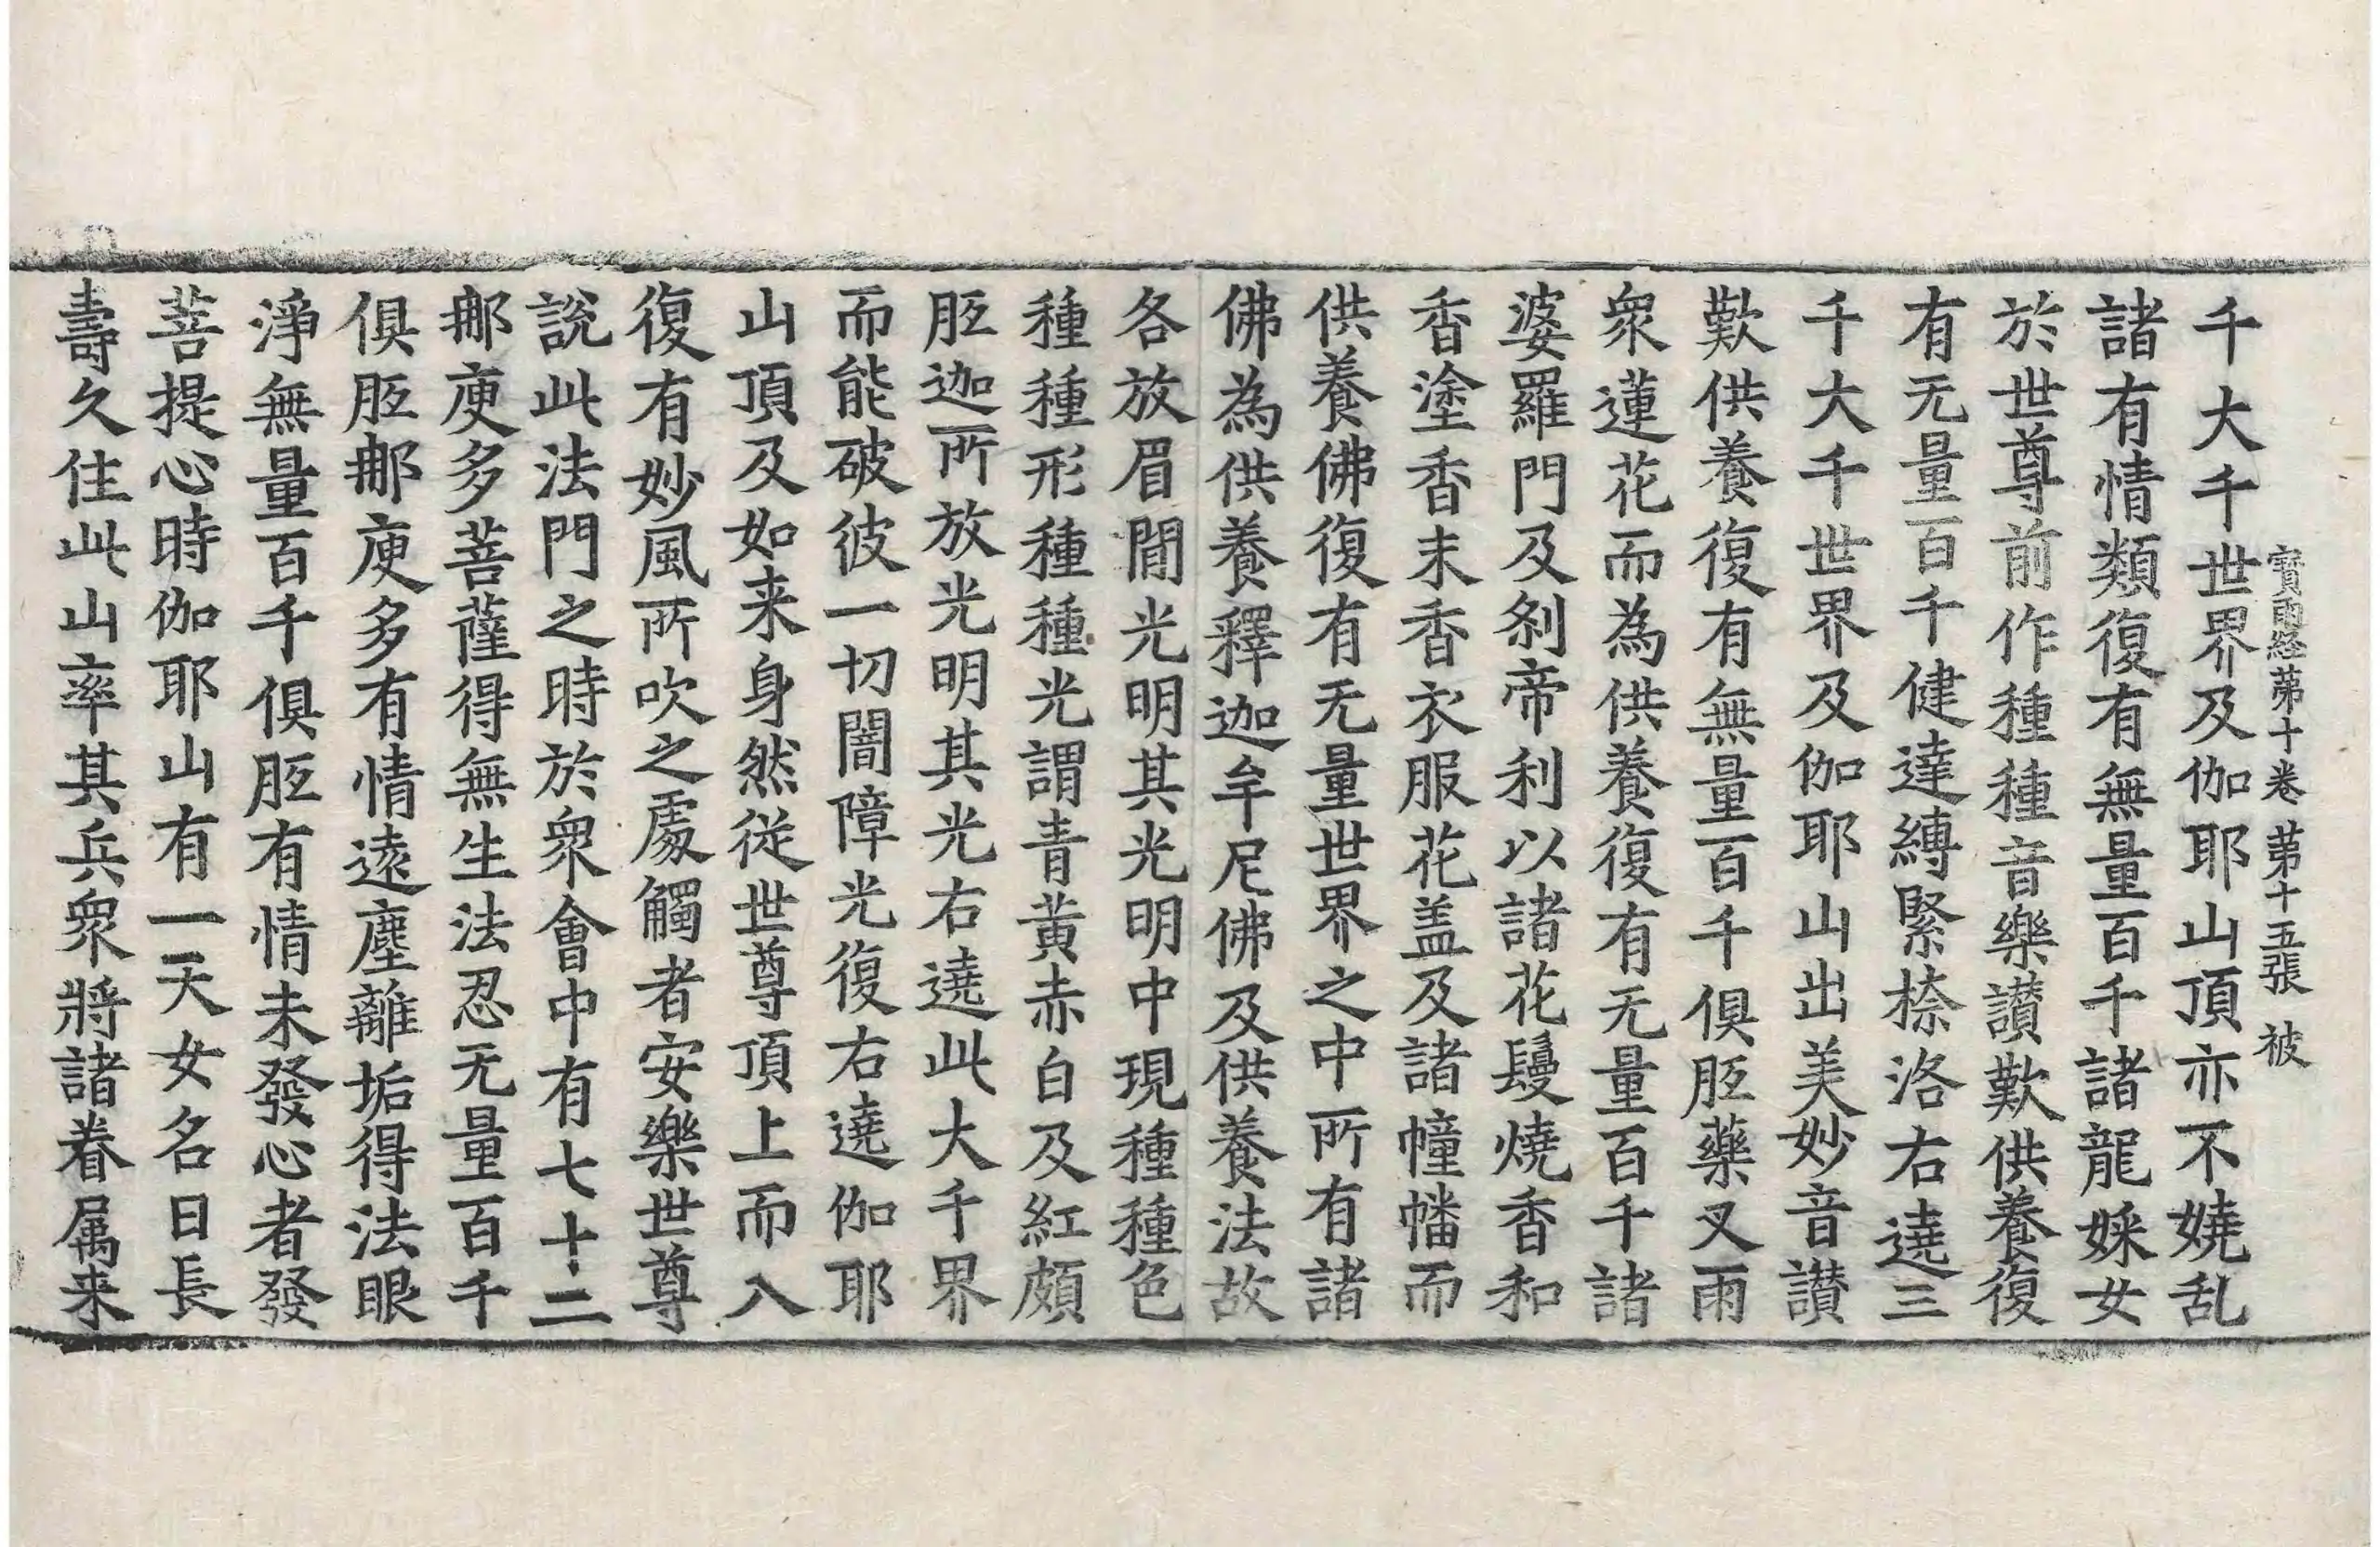 寶雨経苐十卷 苐十五張 被
千大千世界及伽耶山頂亦不嬈乱
諸有情類復有無量百千諸龍婇女
於世尊前作種種音樂讃歎供養復
有无量百千健達縛緊捺洛右遶三
千大千世界及伽耶山出美妙音讃
歎供養復有無量百千俱胝藥叉雨
衆蓮花而為供養復有无量百千諸
婆羅門及刹帝利以諸花鬘燒香和
香塗香末香衣服花盖及諸幢幡而
供養佛復有无量世界之中所有諸
佛為供養釋迦牟尼佛及供養法故
各放眉間光明其光明中現種種色
種種形種種光謂青黄赤白及紅頗
胝迦所放光明其光右遶此大千界
而能破彼一切闇障光復右遶伽耶
山頂及如来身然從世尊頂上而入
復有妙風所吹之處觸者安樂世尊
說此法門之時於衆會中有七十二
那庾多菩薩得無生法忍无量百千
俱胝那庾多有情遠塵離垢得法眼
淨無量百千俱胝有情未發心者發
菩提心時伽耶山有一天女名曰長
壽久住此山率其兵衆將諸眷属来